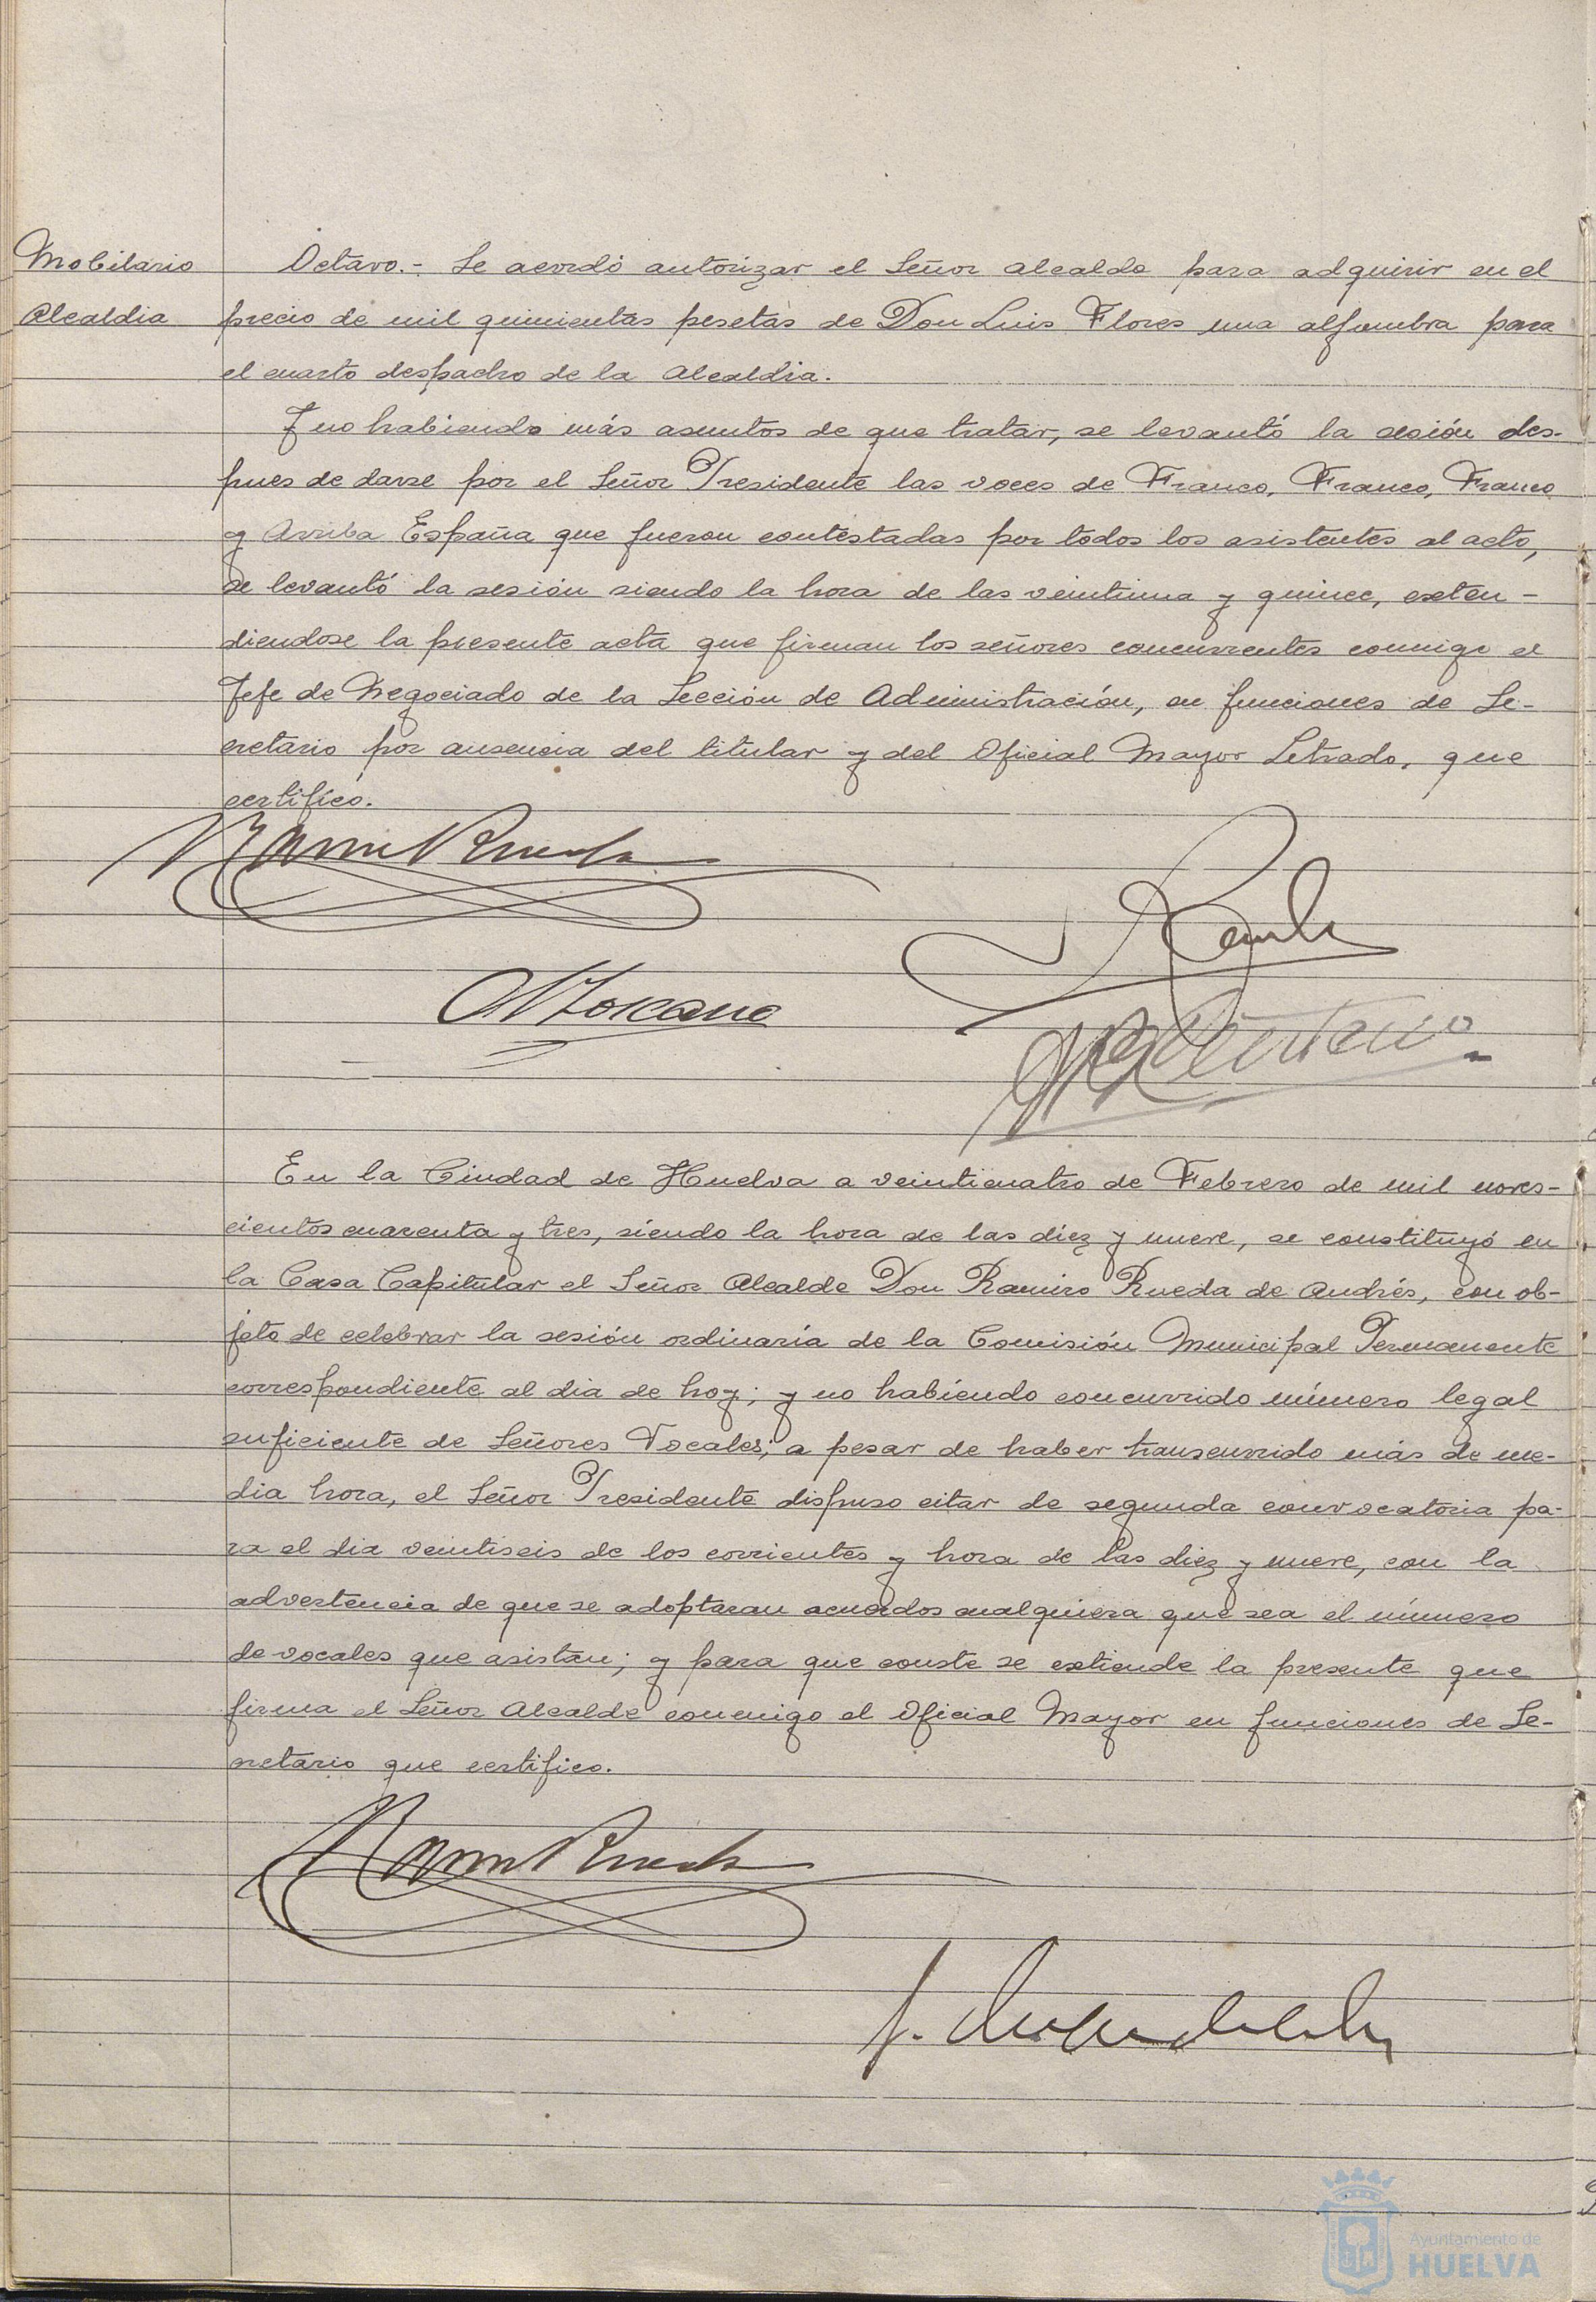 Mobilario
Alcaldia
Octavo.- Se acordó autorizar el Señor Alcalde para adquirir en el
precio de mil quinientas pesetas de Don Luis Flores una alfombra para
el cuarto despacho de la Alcaldia.
Y no habiendo más asuntos de que tratar, se levantó la sesión des-
pues de darse por el Señor Presidente las voces de Franco, Franco, Franco
y Arriba España que fueron contestadas por todos los asistentes al acto,
se levantó la sesión siendo la hora de las veintiuna y quince, exten-
diendose la presente acta que firman los señores concurrentes conmigo el
Jefe de Negociado de la Sección de Administración, en funciones de Se-
cretario por ausencia del titular y del Oficial Mayor Letrado, que
certifico.
En la Ciudad de Huelva a veinticuatro de Febrero de mil noves-
cientos cuarenta y tres, siendo la hora de las diez y nueve, se constituyó en
la Casa Capitular el Señor Alcalde Don Ramiro Rueda de Andrés, con ob-
jeto de celebrar la sesión ordinaria de la Comisión Municipal Permanente
correspondiente al dia de hoy; y no habiendo concurrido número legal
suficiente de Señores Vocales; a pesar de haber transcurrido más de me-
dia hora, el Señor Presidente dispuso citar de segunda convocatoria pa-
ra el dia veintiseis de los corrientes y hora de las diez y nueve, con la
advertencia de que se adoptaran acuerdos cualquiera que sea el número
de vocales que asistan; y para que conste se extiende la presente que
firma el Señor Alcalde conmigo el Oficial Mayor en funciones de Se-
cretario que certifico.
Ayuntamiento de
HUELVA